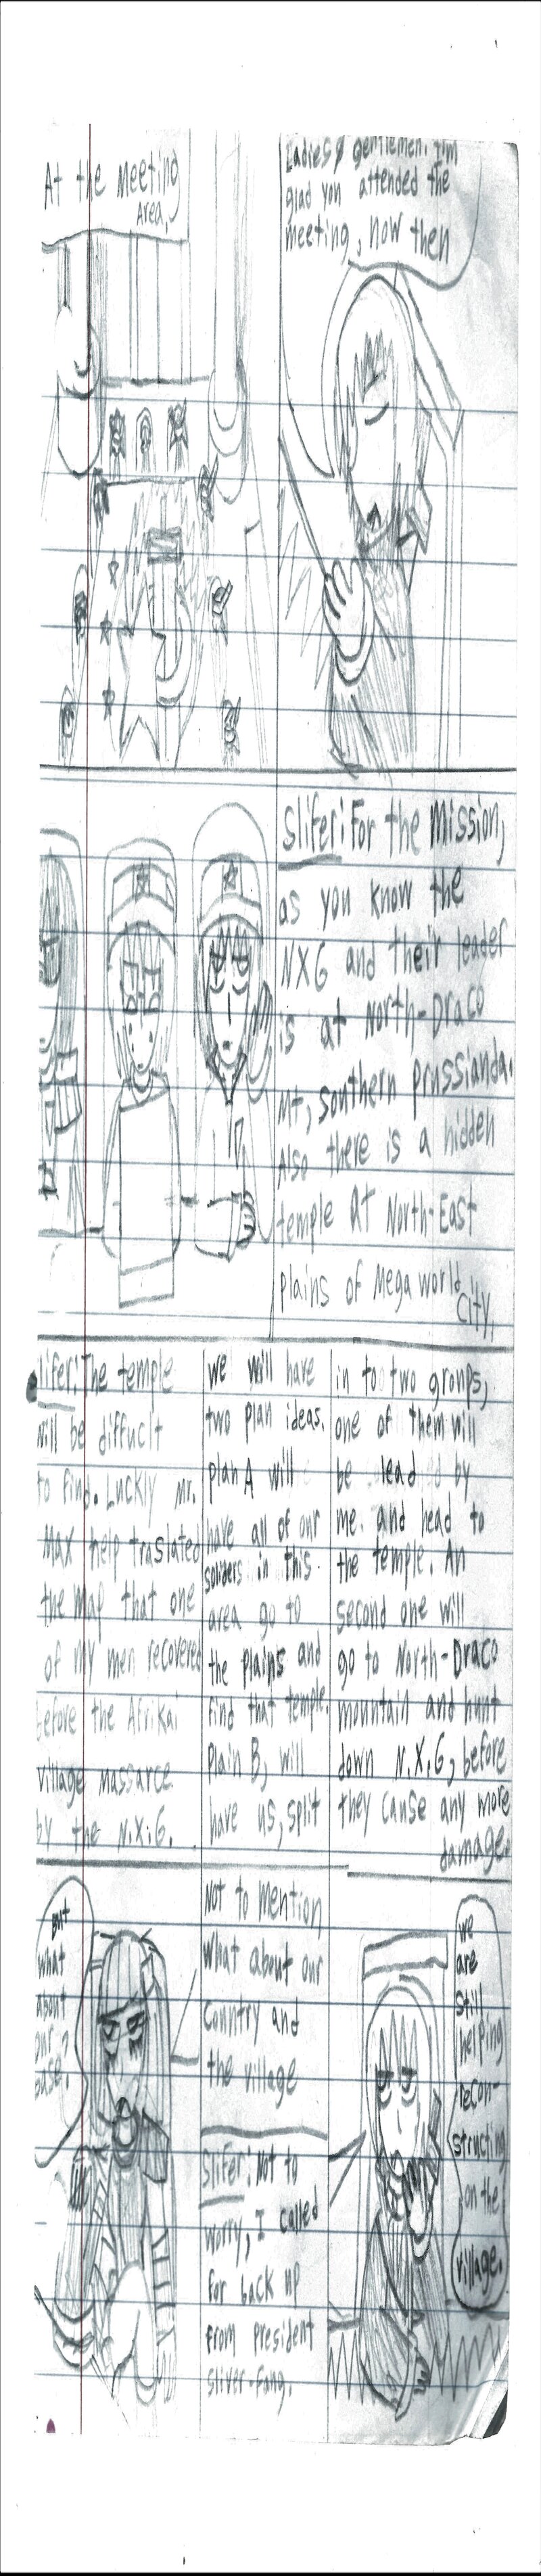 At the Meeting
Area,
Ladies & gentlemen. I'm
glad you attended the
meeting, now then
Slifer: For the Mission,
as you know the
NXG and their leader
is at North-Draco
Mt, southern prussianda.
Also there is a hidden
temple at North-East
plains of Mega world
City,
lifer: The temple
will be diffucit
to find. Luckly Mr.
Max help traslated
the map that one
of my men recovered
before the Afrikai
village massarce
by the N.X.G.
we will have
two plan ideas.
plan A will
have all of our
soliders in this
area go to
the plains and
find that temple.
Plain B, will
have us, split
in to two groups,
one of them will
be lead by
me. and head to
the temple. An
second one will
go to North-Draco
mountain and hunt
down N.X.G, before
they cause any more
damage.
But
what
about
our
base?
Not to Mention
what about our
Country and
the village
Slifer: Not to
worry, I called
for back up
from president
sliver-Fang.
we
are
still
helping
recon-
structing
on the
village.